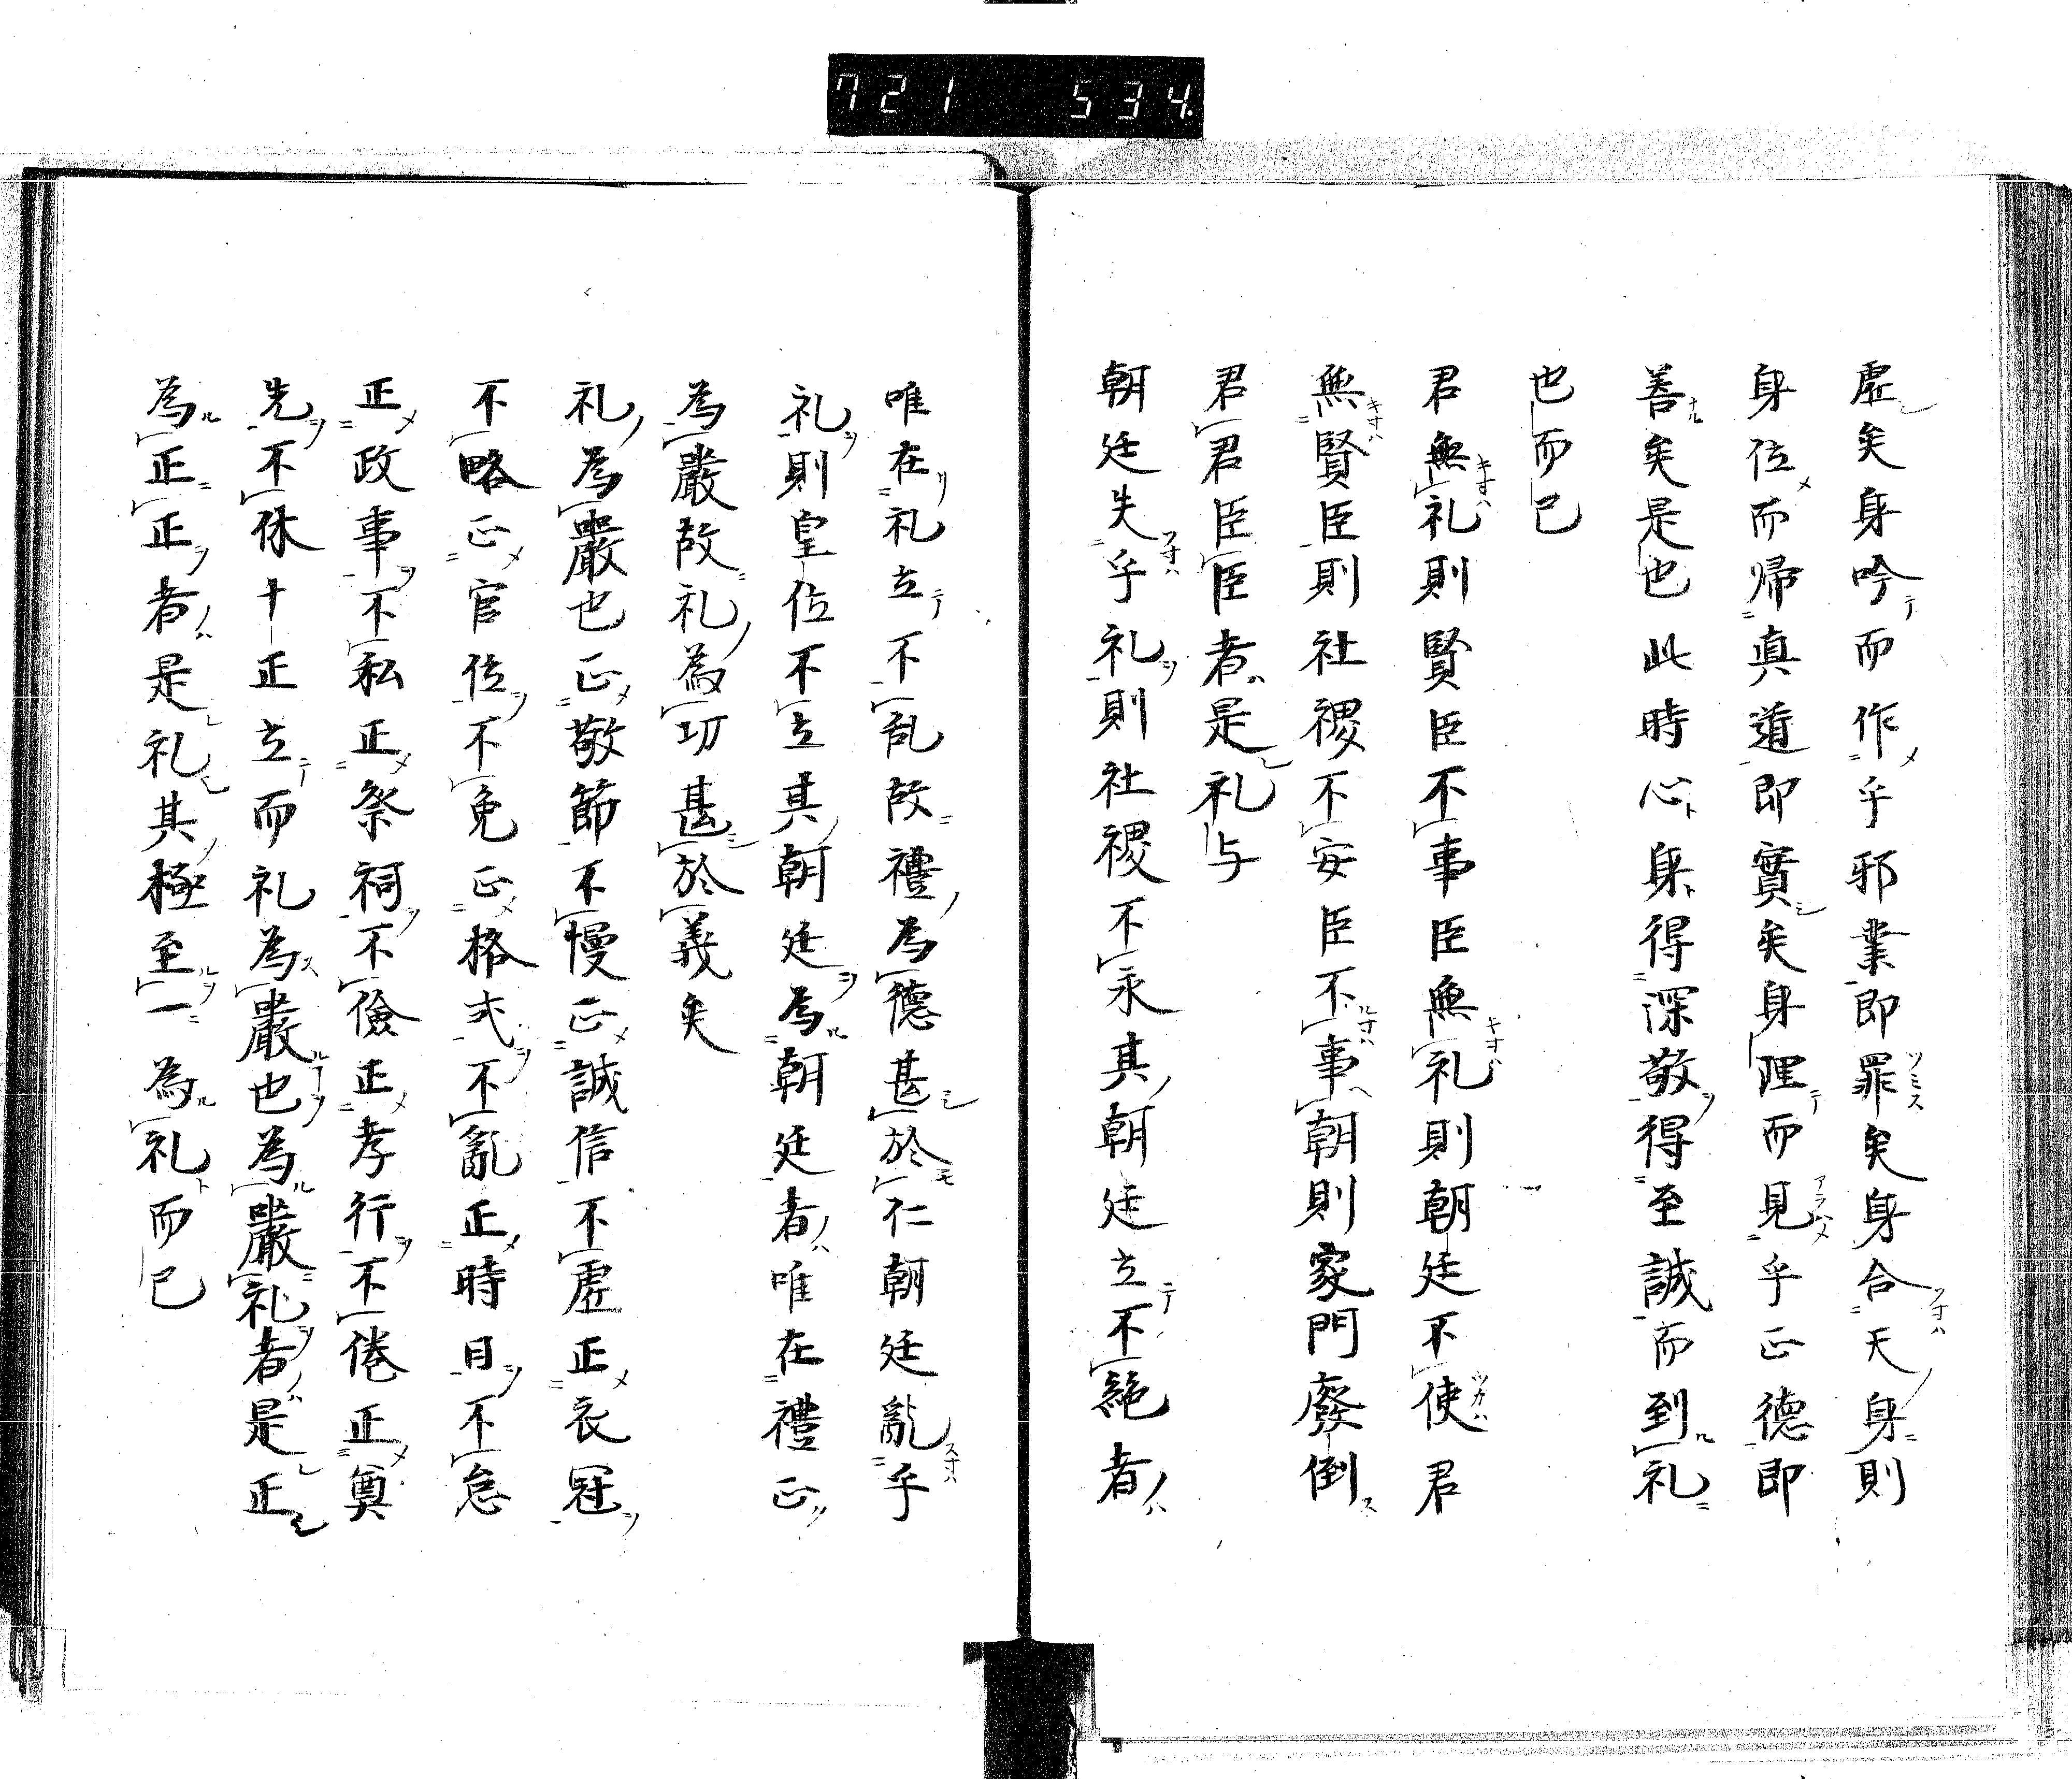 721 534.
虚矣身吟而作乎邪業即罪矣身合天身則
身位而帰真道即實矣身陘而見乎正德即
善矣是也此時心身得深敬得至誠而到礼
也而已
君無礼則賢臣不事臣無礼則朝廷不使君
無賢臣則社稷不安臣不事朝則家門廢倒
君君臣臣者是礼与
朝廷失乎礼則社稷不永其朝廷立不絕者
唯在礼立不乱故禮為德甚於仁朝廷亂乎
礼則皇位不立其朝廷為朝廷者唯在禮正
為嚴故礼為切甚於義矣
礼為嚴也正敬節不慢正誠信不虚正衣冠
不略正官位不免正格式不亂正時日不怠
正政事不私正祭祠不儉正孝行不倦正奠
先不休十正立而礼為嚴也為嚴礼者是正
為正正者是礼其極至一為礼而已